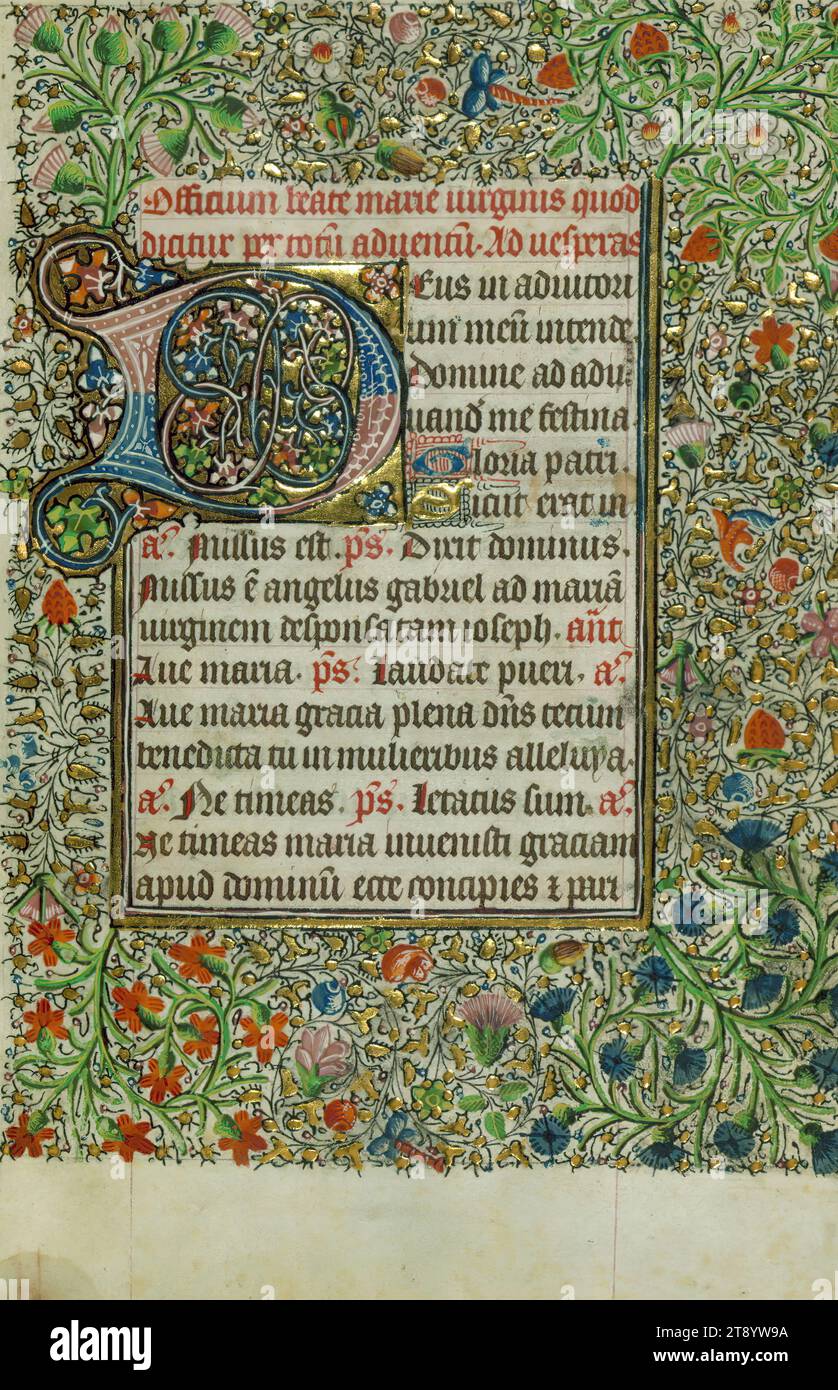 Officium beate marie uirginis quod
dicitur per totū aduentū. Ad uesperas
DEus in adiutori
um meū intende
Domine ad adiu
uand' me festina.
Gloria patri.
Sicut erat in
a'. Missus est. ps. Dixit dominus.
Missus ē angelus gabriel ad mariā
uirginem desponsatam ioseph. ant
Aue maria. ps. Laudate pueri. a'.
Aue maria gracia plena dn̄s tecum
benedicta tu in mulieribus alleluya.
a'. Ne timeas. ps. Letatus sum. a'.
Ne timeas maria inuenisti graciam
apud dominū ecce concipies ⁊ pari
alamy
Image ID: 2T8YW9A
www.alamy.com